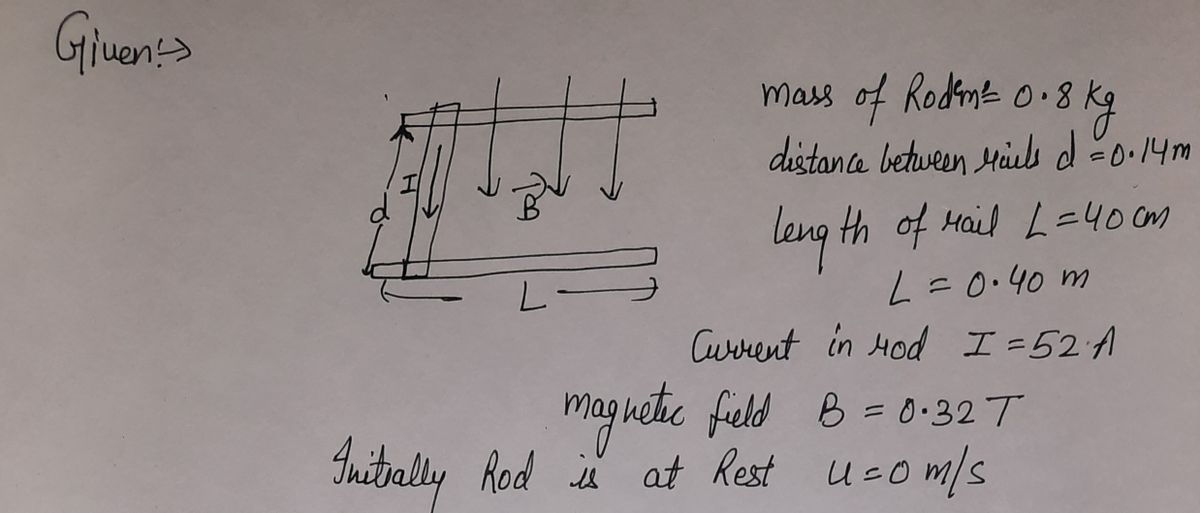 Given:→
mass of Rod "m" = 0.8 kg
distance between rails d = 0.14m
length of rail L = 40 cm
L = 0.40 m
Current in rod I = 52 A
magnetic field B = 0.32 T
Initially Rod is at Rest u = 0 m/s
d
I
B
L